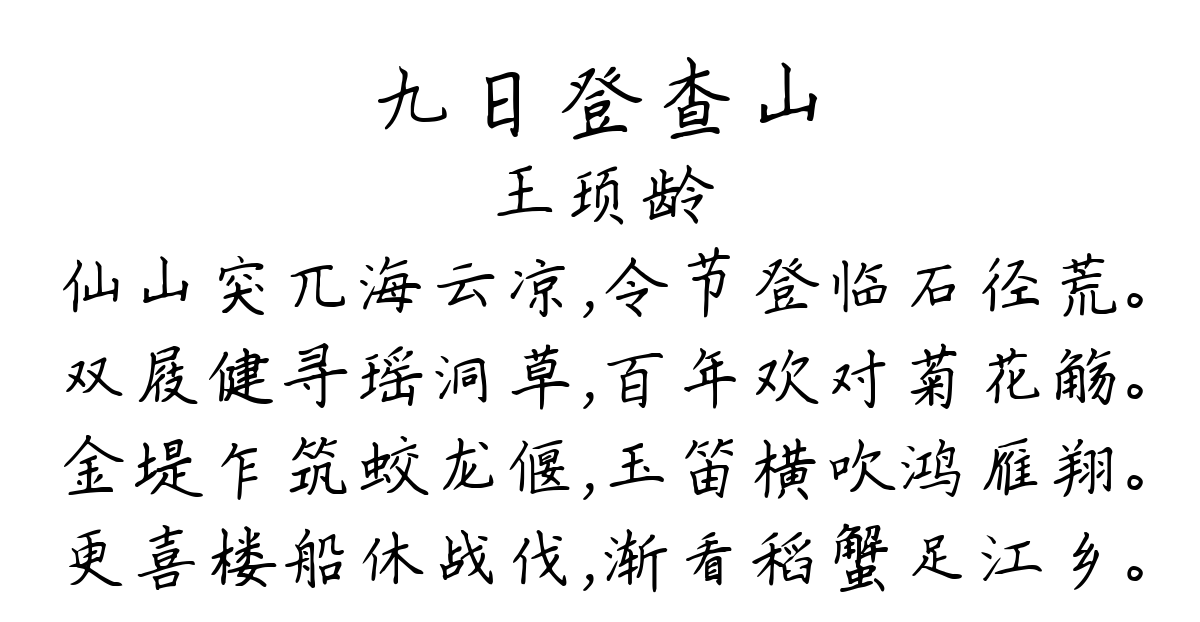 九日登查山
王顼龄
仙山突兀海云凉,令节登临石径荒。
双屐健寻瑶洞草,百年欢对菊花觞。
金堤乍筑蛟龙偃,玉笛横吹鸿雁翔。
更喜楼船休战伐,渐看稻蟹足江乡。